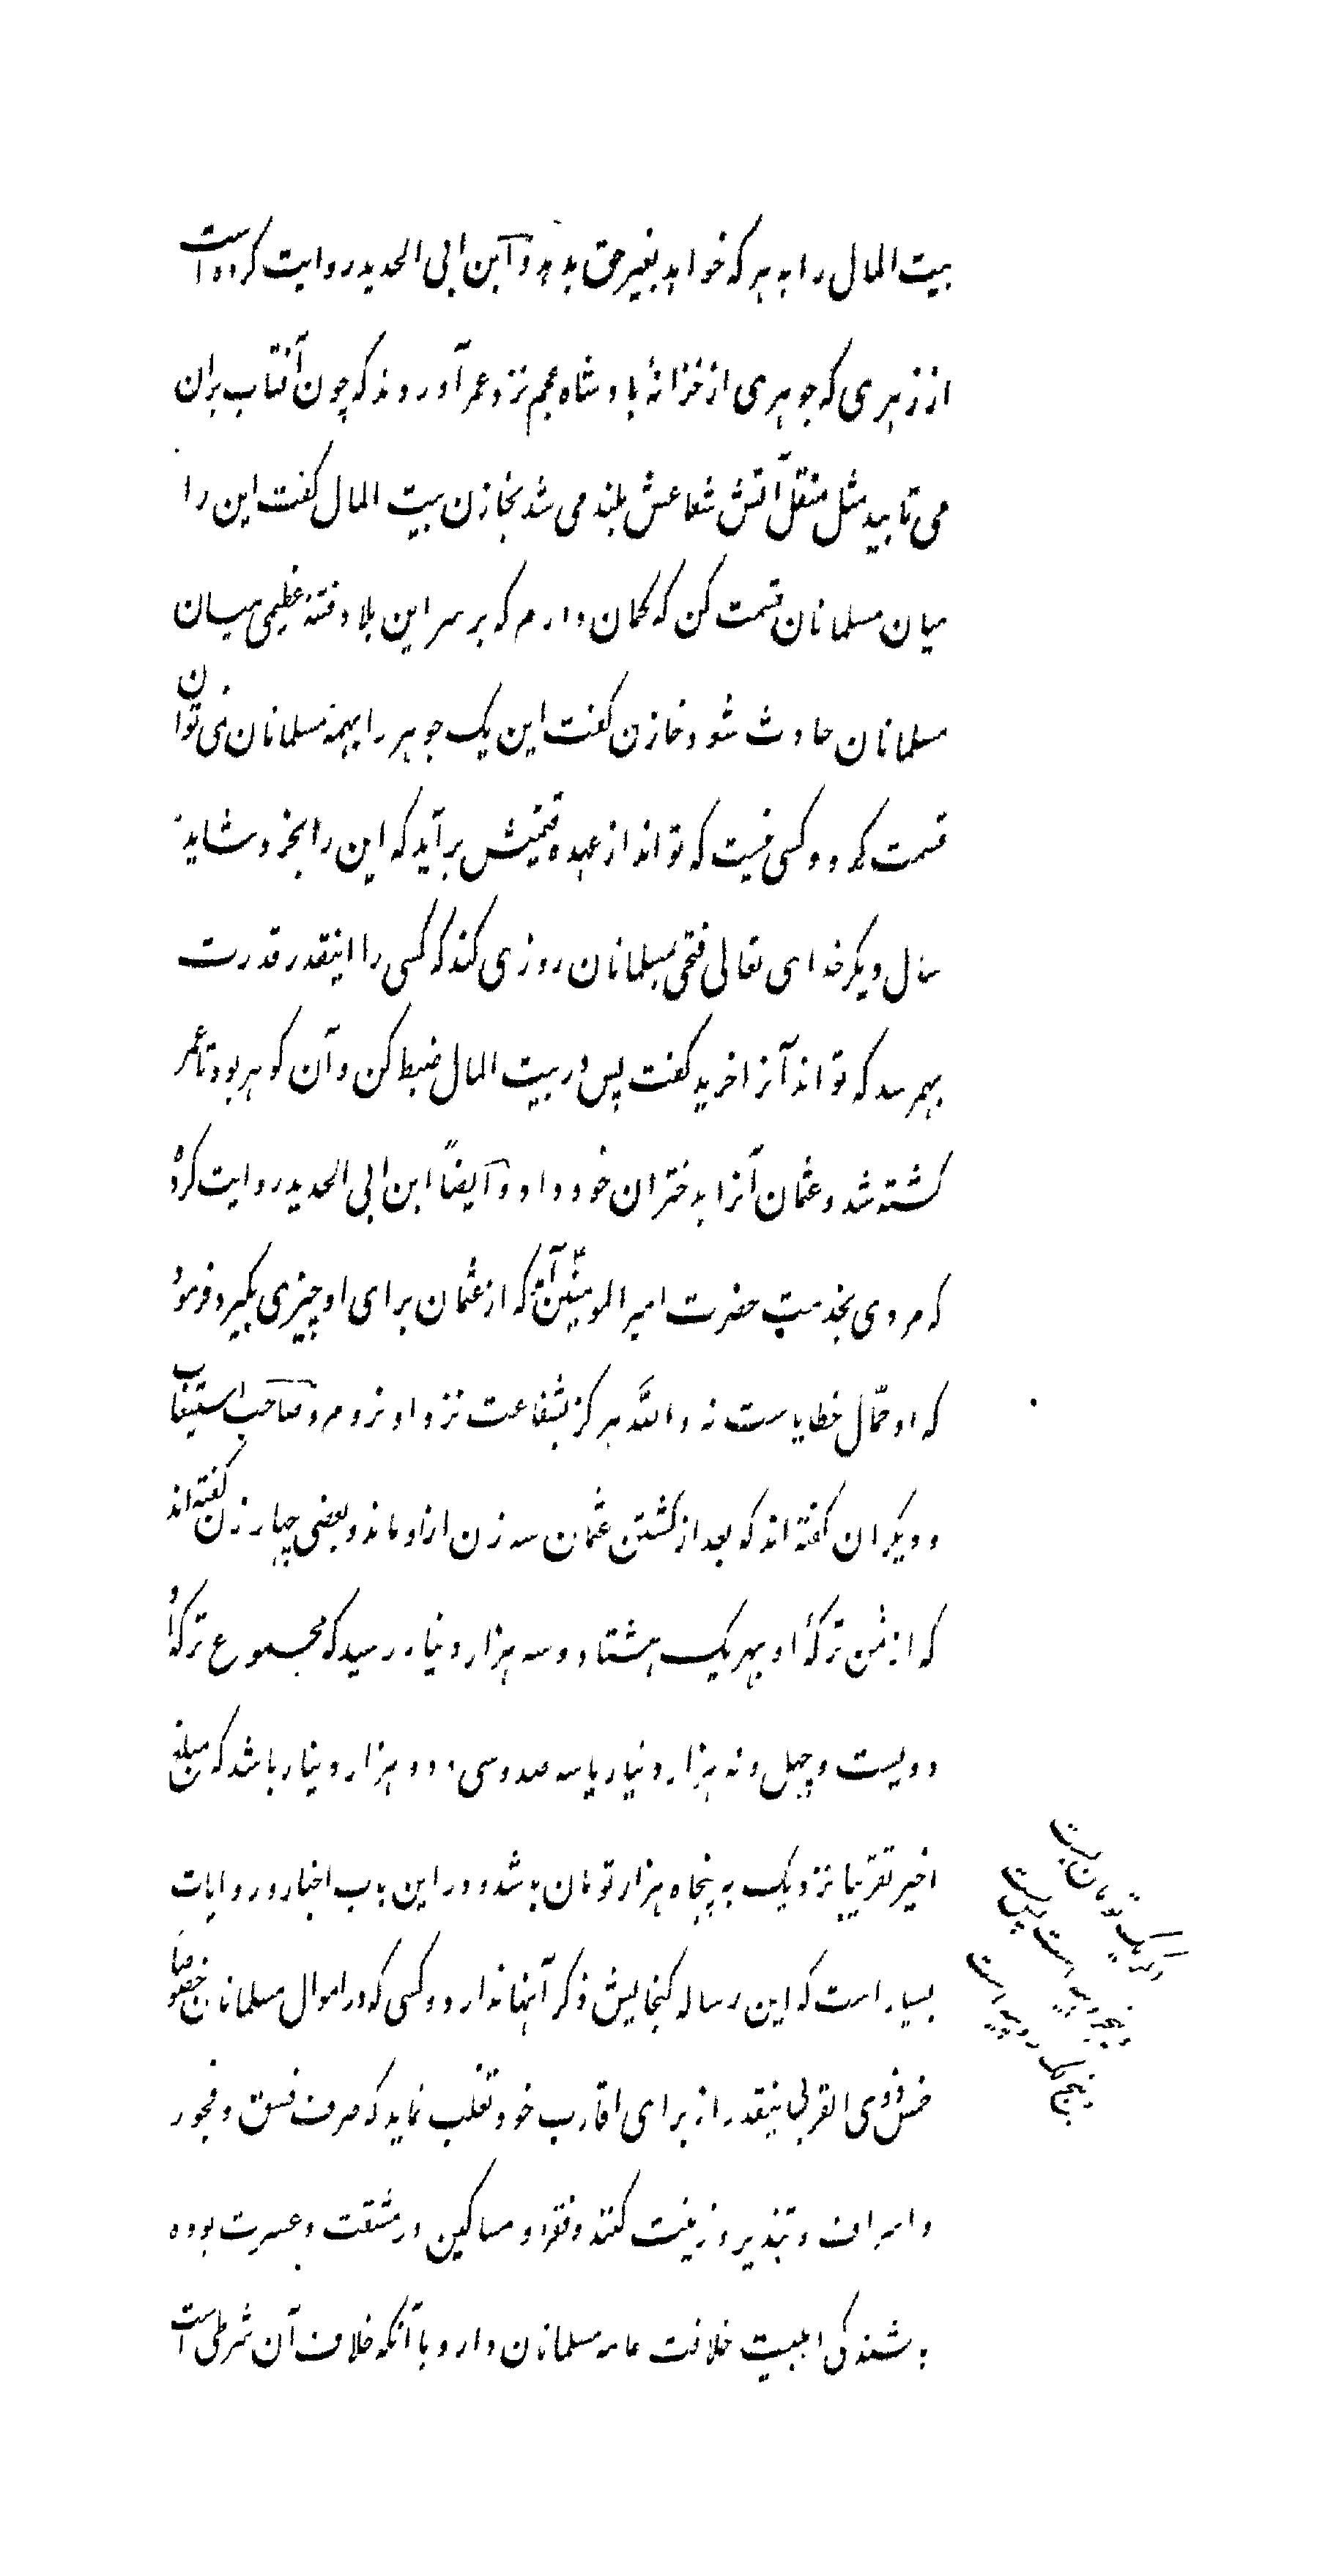 بیت المال را به هر که خواهد بغیر حق بدهد و ابن ابی الحدید روایت کرده است
از زهری که جوهری از خزانهٔ بادشاه عجم نزد عمر آوردند که چون آفتاب بران
می تابید مثل منقل آتش شعاعش بلند می شد بخازن بیت المال کفت این را
میان مسلمانان قسمت کن که کمان دارم که بر سر این بلا و فتنهٔ عظیمی میان
مسلمانان حادث شود خازن کفت این یک جوهر را بهمهٔ مسلمانان نمی توان
قسمت کرد و کسی نیست که تواند از عهدهٔ قیمتش برآید که این را بخرد شاید
سال دیکر خدای تعالی فتحی بمسلمانان روزی کند که کسی را اینقدر قدرت
بهم رسد که تواند آنرا خرید کفت پس در بیت المال ضبط کن و آن کوهر بود تا عمر
کشته شد و عثمان آنرا بدختران خود داد و ایضًا ابن ابی الحدید روایت کرده
که مردی بخدمت حضرت امیر المومنینؑ آمد که از عثمان برای او چیزی بکیرد فرمود
که او حمّال خطایاست نه والله هرکز بشفاعت نزد او نروم و صاحب استیعاب
و دیکران کفته اند که بعد از کشتن عثمان سه زن از او ماند و بعضی چهار زن کفته اند
که از ثمن ترکهٔ او بهر یک هشتاد و سه هزار دینار رسید که مجموع ترکهٔ او
دویست و چهل و نه هزار دینار یا سه صد و سی و دو هزار دینار باشد که مبلغ
اخیر تقریبا نزدیک به پنجاه هزار تومان باشد و در این باب اخبار و روایات
بسیار است که این رساله کنجایش ذکر آنها ندارد و کسی که در اموال مسلمانان خصوصاً
خمس ذوی القربی اینقدر از برای اقارب خود تغلب نماید که صرف فسق و فجور
و اسراف و تبذیر و زینت کنند و فقرا و مساکین در مشقت و عسرت بوده
باشند کی اهلیت خلافت عامه مسلمانان دارد با آنکه خلاف آن شرطی است